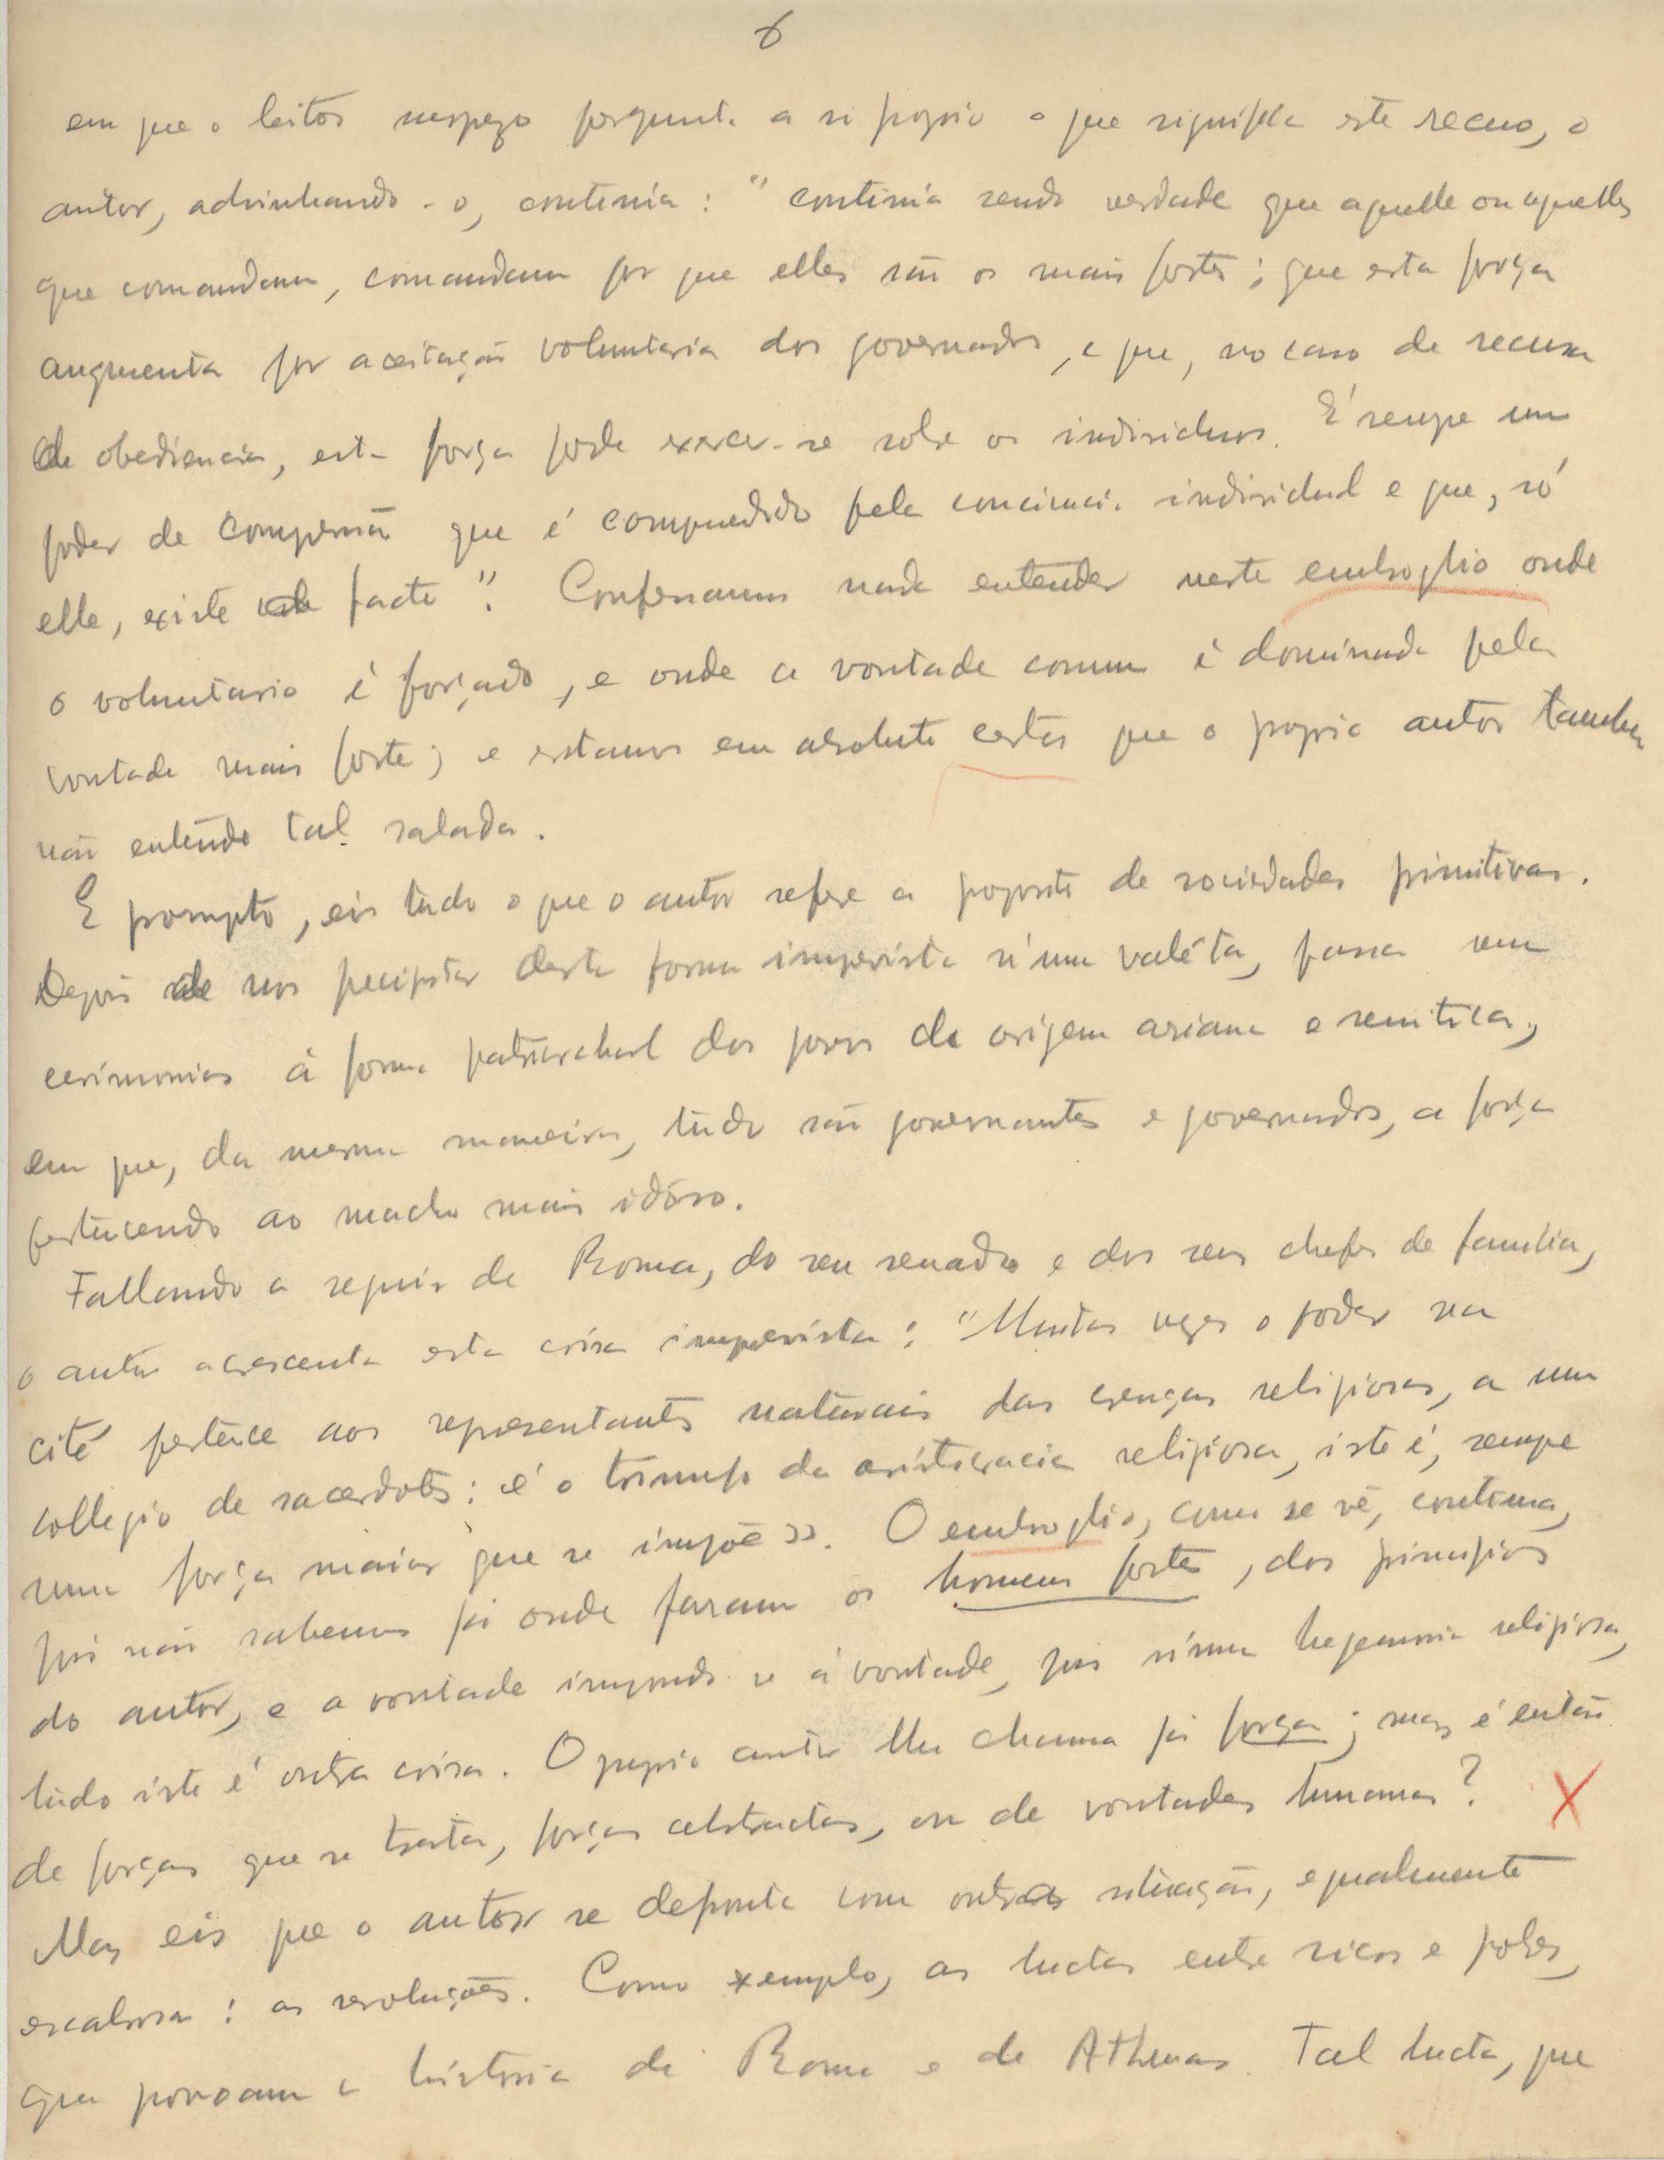 6
em que o leitor surprezo pergunta a si proprio o que significa este recuo, o
autor, advinhando-o, continúa: "continúa sendo verdade que aquelle ou aquelles
que comandam, comandam por que elles são os mais fortes; que esta força
augmenta por aceitação voluntaria dos governados, e que, no caso de recusa
de obediencia, esta força pode exercer-se sobre os individuos. É sempre um
poder de compressão que é comprehedido pela conciencia individual e que, só
elle, existe de facto". Confessamos nada entender neste embroglio onde
o voluntario é forçado, e onde a vontade comum é dominada pela
vontade mais forte; e estamos em absoluto certos que o proprio autor tambem
não entende tal salada.
E prompto, eis tudo o que o autor refere a proposito de sociedades primitivas.
Depois de nos precipitar desta forma imprevista n'uma valêta, passa sem
cerimonias á forma patriarchal dos povos de origem ariana e semitica,
em que, da mesma maneira, tudo são governantes e governados, a força
pertencendo ao macho mais idôso.
Fallando a seguir de Roma, do seu senado e dos seus chefes de familia,
o autor acrescenta esta coisa imprevista: "Muitas vezes o poder na
cité pertence aos representantes naturais das crenças religiosas, a um
collegio de sacerdotes: é o triunfo da aristocracia religiosa, isto é, sempre
uma força maior que se impõe». O embroglio, como se vê, continua,
pois não sabemos já onde param os homens fortes, dos principios
do autor, e a vontade impondo-se á vontade, pois n'uma hegemonia religiosa,
tudo isto é outra coisa. O proprio autor lhe chama já força; mas é então
de forças que se trata, forças abstractas, ou de vontades humanas?
Mas eis que o autor se defronta com outra situação, egualmente
escabrosa: as revoluções. Como exemplo, as luctas entre ricos e pobres,
que povoam a historia de Roma e de Athenas. Tal lucta, que